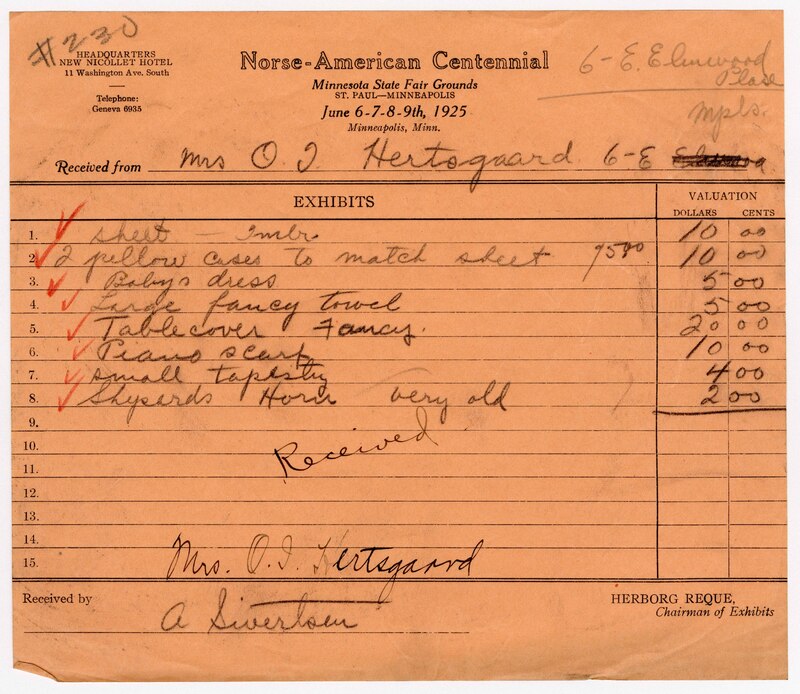 #230
HEADQUARTERS
NEW NICOLLET HOTEL
11 Washington Ave. South
Telephone:
Geneva 6935
Norse-American Centennial
Minnesota State Fair Grounds
ST. PAUL—MINNEAPOLIS
June 6-7-8-9th, 1925
Minneapolis, Minn.
6-E. Elmwood
Place
Mpls.
Received from Mrs O. I. Hertsgaard 6-E
EXHIBITS VALUATION
DOLLARS CENTS
1. sheet — 10 00
2. 2 pellow cases to match sheet 10 00
3. Baby's dress 5 00
4. Large fancy towel 5 00
5. Tablecover Fancy. 20 00
6. Piano scarf 10 00
7. small tapestry 4 00
8. Shypards Horn very old 2 00
9.
10. Received
11.
12.
13.
14.
15. Mrs. O. I. Hertsgaard
Received by A Sivertsen
HERBORG REQUE,
Chairman of Exhibits